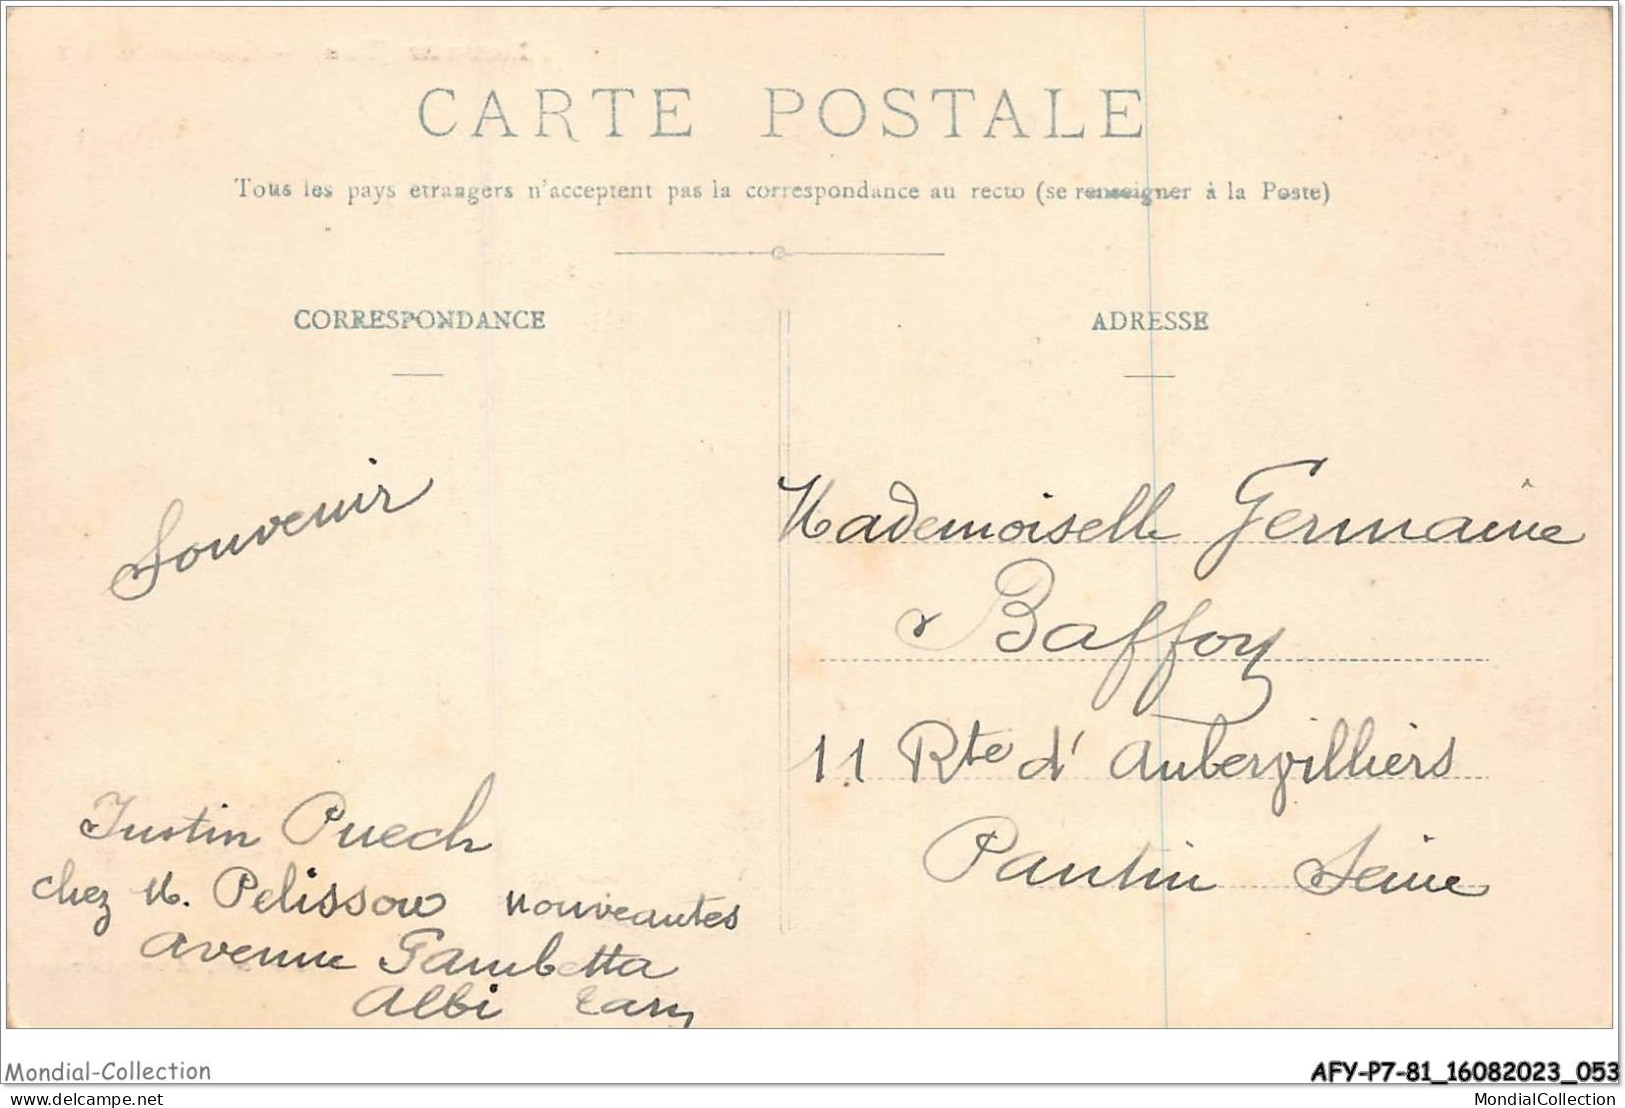 CARTE POSTALE
Tous les pays etrangers n'acceptent pas la correspondance au recto (se renseigner à la Poste)
CORRESPONDANCE
ADRESSE
Souvenir
Justin Puech
chez M. Pelissou nouveautés
Avenue Gambetta
Albi Tarn
Mademoiselle Germaine
Baffoy
11 Rte d'Aubervilliers
Pantin Seine
Mondial-Collection
AFY-P7-81_16082023_053
delcampe.net
MondialCollection